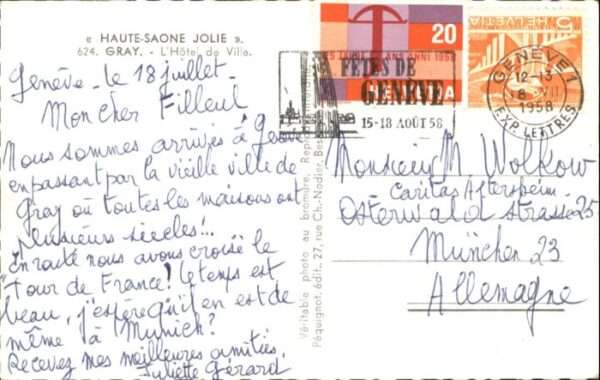 « HAUTE-SAONE JOLIE ».
624. GRAY. - L'Hôtel de Ville.
Genève - le 18 juillet -
Mon cher Filleul
Nous sommes arrivés à Genève
en passant par la vieille ville de
Gray où toutes les maisons ont
plusieurs siècles!..
En route nous avons croisé le
"Tour de France! le temps est
beau, j'espère qu'il en est de
même à Munich?
Recevez mes meilleures amitiés.
Juliette Gérard
Véritable photo au bromure,
Péquignot, édit., 27, rue Ch.-Nodier,
20
HELVETIA
5
HELVETIA
FÊTES DE
GENÈVE
15-18 AOÛT 58
GENÈVE 1
12-13
1958
EXP. LETTRES
Monsieur M. Wolkow
Caritas Altersheim
Osterwald strasse 25
München 23
Allemagne